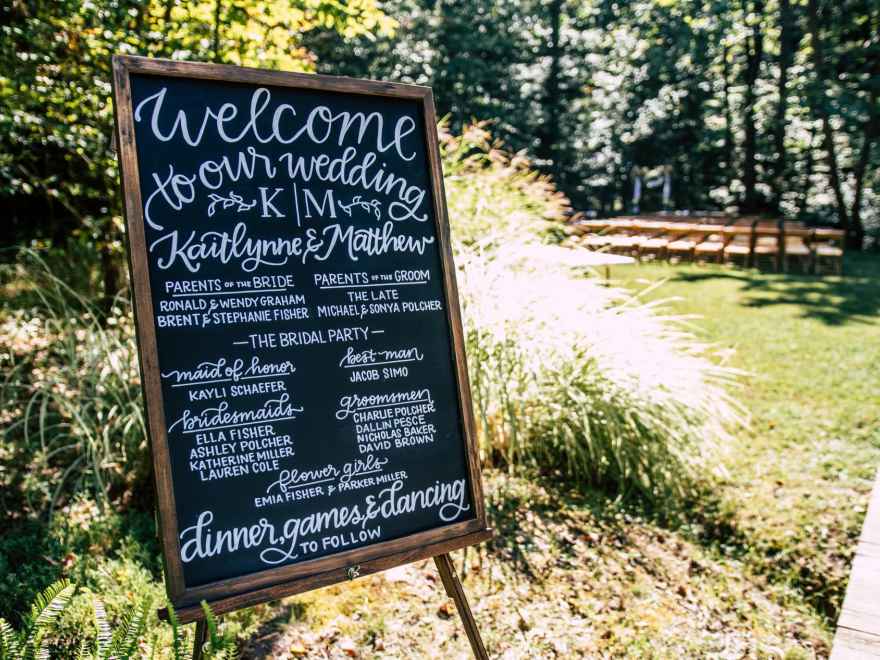 Welcome
to our wedding
K|M
Kaitlynne & Matthew
PARENTS OF THE BRIDE
RONALD & WENDY GRAHAM
BRENT & STEPHANIE FISHER
PARENTS OF THE GROOM
THE LATE
MICHAEL & SONYA POLCHER
—THE BRIDAL PARTY—
maid of honor
KAYLI SCHAEFER
best man
JACOB SIMO
bridesmaids
ELLA FISHER
ASHLEY POLCHER
KATHERINE MILLER
LAUREN COLE
groomsmen
CHARLIE POLCHER
DALLIN PESCE
NICHOLAS BAKER
DAVID BROWN
flower girls
EMIA FISHER & PARKER MILLER
dinner, games, & dancing
TO FOLLOW